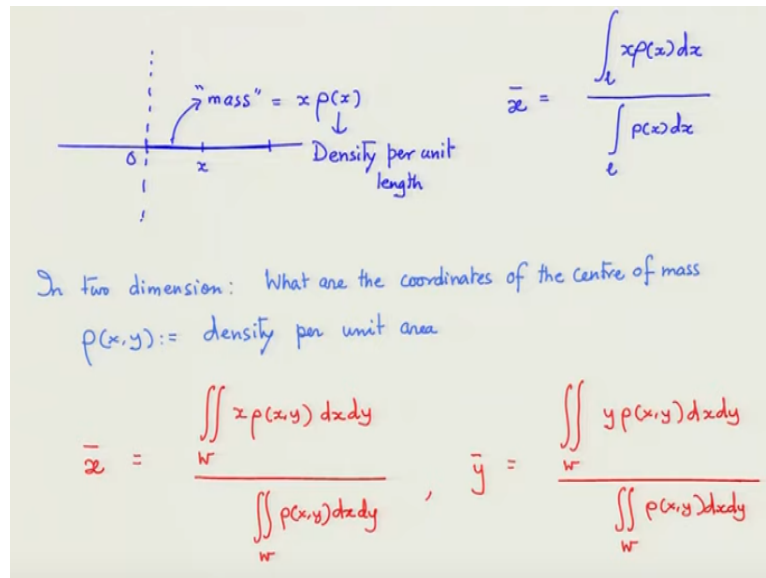 "mass" = x ρ(x)
0 x
Density per unit
length
x̄ = ∫_l xρ(x)dx / ∫_l ρ(x)dx
In two dimension: What are the coordinates of the centre of mass
ρ(x,y):= density per unit area
x̄ = ∬_W xρ(x,y) dxdy / ∬_W ρ(x,y)dxdy , ȳ = ∬_W yρ(x,y)dxdy / ∬_W ρ(x,y)dxdy